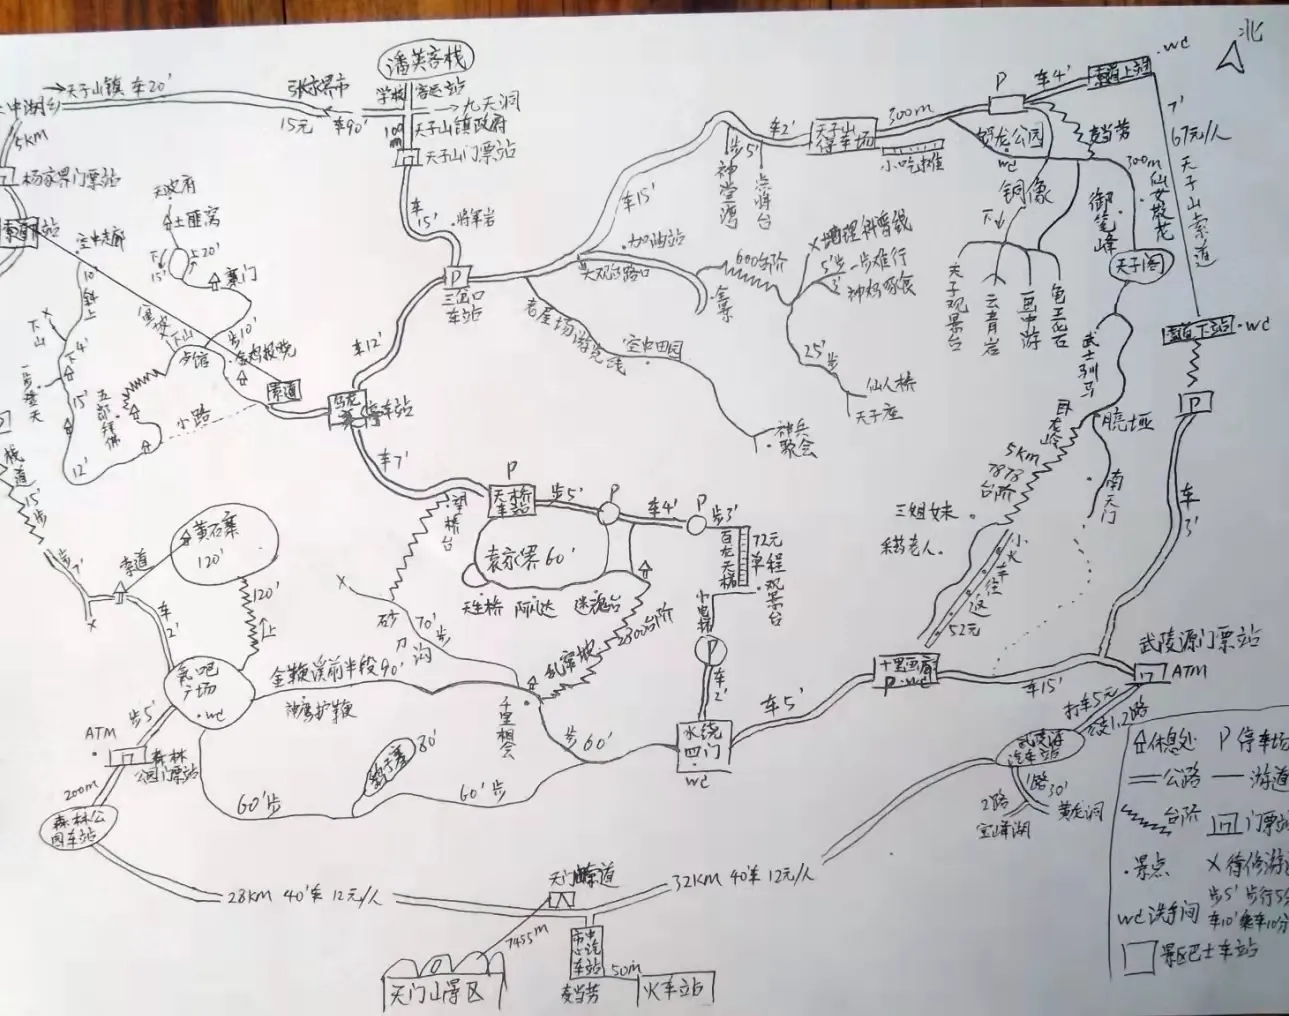 北
潘英客栈
→天子山镇 车20'
中湖乡
5KM
杨家界门票站
张家界市
15元 车90'
学校
客运站
→九天洞
100m
天子山镇政府
天子山门票站
车15'
将军岩
P
三岔口
车站
车12'
车15'
步5'
神堂湾
点将台
车2'
天子山
停车场
300m
小吃摊
P
车4'
索道上站
wc
7'
67元/人
天子山索道
索道下站
wc
P
车3'
公园
wc
麦当劳
300m
仙女散花
铜像
下
御笔峰
天子阁
天子观景台
云青岩
一画中游
龟王岩
加油站
大观台路口
600台阶
5'
一步难行
25'步
仙人桥
天子座
老屋场游览线
空中田园
神兵
聚会
空中走廊
10'
土匪窝
下15'
上20'
寨门
步10'
下山
下4'
一步登天
15'
12'
五郎拜佛
小路
索道
停车站
车7'
望桥台
P
天桥
车站
步5'
P
车4'
P
步3'
百龙天梯
72元
单程
观景台
袁家界60'
天生桥
迷魂台
2300台阶
乱窜坡
砂刀沟
70'步
P
车2'
水绕
四门
wc
车5'
十里画廊
P·wc
车15'
武士驯马
卧龙岭
5KM
7878
台阶
南天门
三姐妹
采药老人
小火车往返
52元
武陵源门票站
ATM
打车5元
1,2路
武陵源
汽车站
1路
30'
黄龙洞
2路
宝峰湖
栈道
15'步
步7'
索道
黄石寨
120'
120'
上
车2'
氧吧
广场
wc
金鞭溪前半段90'
神鹰护鞭
千里相会
步60'
鹞子寨
80'
60'步
60'步
步5'
ATM
森林
公园门票站
200m
森林公
园车站
28KM 40'车 12元/人
32KM 40'车 12元/人
天门山索道
7455m
天门山景区
市中心汽车站
麦当劳
50m
火车站
休息处
P 停车场
公路
游道
台阶
门票站
景点
X 待修游道
wc 洗手间
步5' 步行5分
车10' 乘车10分
景区巴士车站